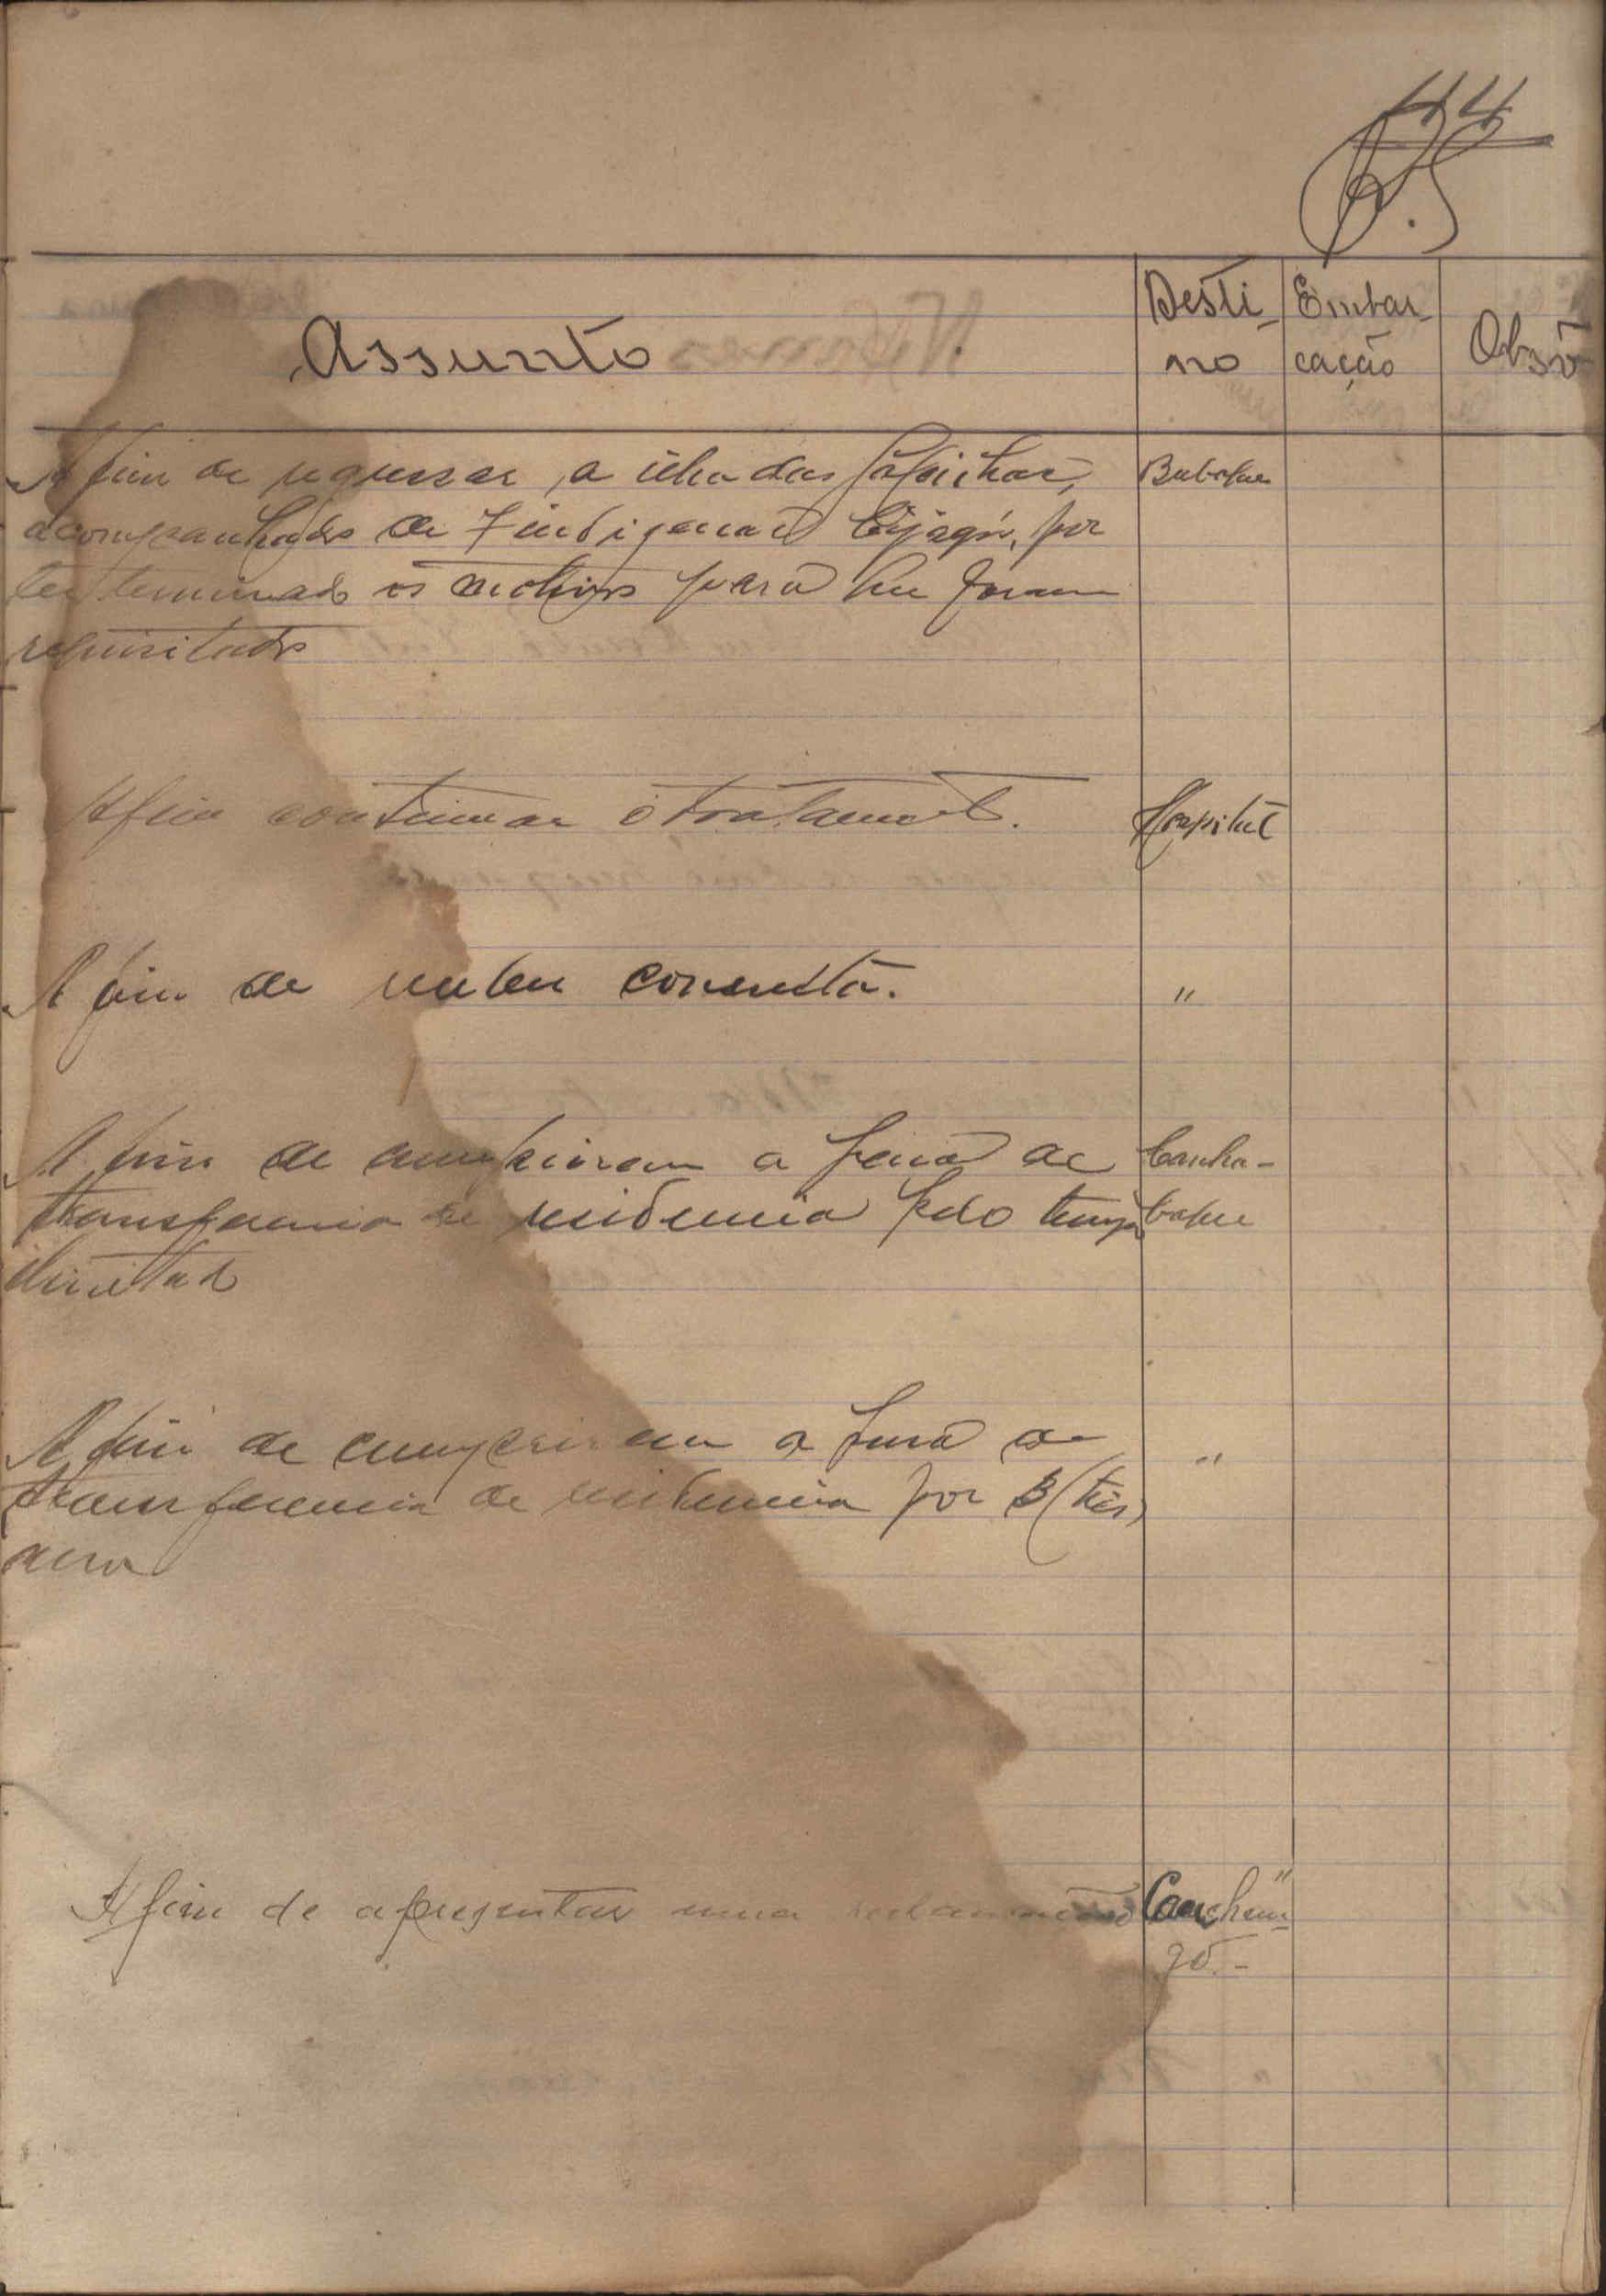 44
Assunto
Desti-
no
Embar-
cação
Obsv
A fim de regressar, a ilha das
acompanhados de 7 indigenas Bijagós, por
ter terminado os motivos para que foram
requisitados
Bubaque
Afim continuar o tratamento.
Hospital
A fim de receber consulta.
"
A fim de cumprirem a pena de
transferencia de residencia pelo tempo
ilimitado
Canha-
baque
A fim de cumprirem a pena de
transferencia de residencia por 3 (três)
anos
"
Afim de apresentar uma reclamação
Canchun-
go.-